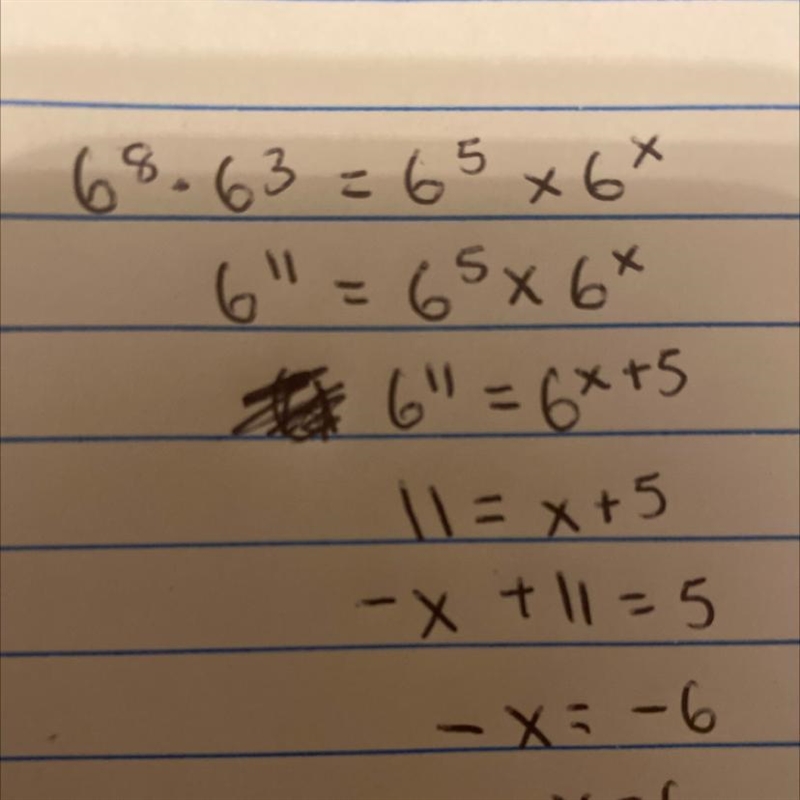 6⁸ · 6³ = 6⁵ × 6ˣ
6¹¹ = 6⁵ × 6ˣ
6¹¹ = 6ˣ⁺⁵
11 = x + 5
-x + 11 = 5
-x = -6